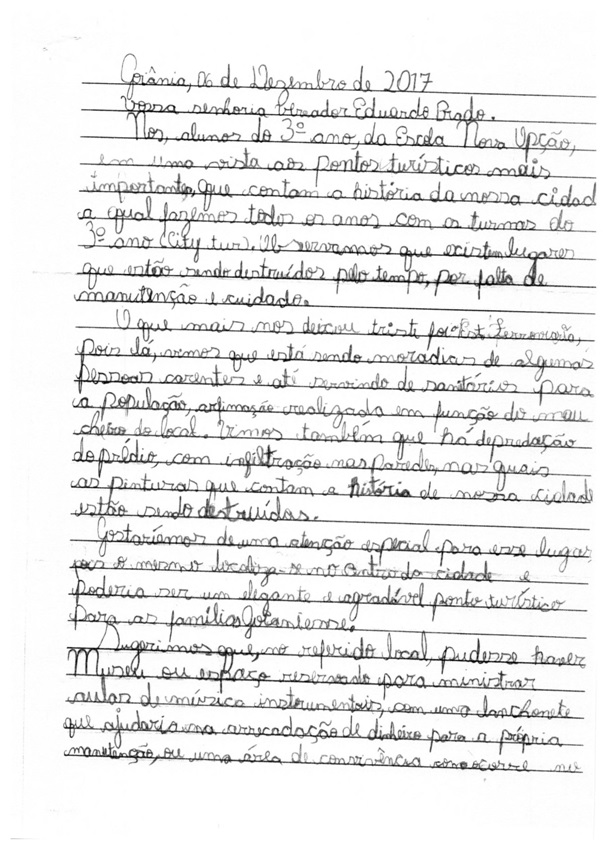 Goiânia, 06 de Dezembro de 2017
Vossa senhoria Vereador Eduardo Prado.
Nos, alunos do 3º ano, da Escola Nova Opção,
em uma vista aos pontos turísticos mais
importantes, que contam a história da nossa cidad
a qual fazemos todos os anos com as turmas do
3º ano (City tur). Observamos que existem lugares
que estão sendo destruídos pelo tempo, por falta de
manutenção e cuidado.
O que mais nos deixou triste foi Est. Ferroviária,
pois lá, vimos que está sendo moradias de algumas
pessoas carentes e até servindo de sanitários para
a população, afirmação realizada em função do mau
cheiro do local. Vimos também que há depredação
do prédio, com infiltração nas paredes, nas quais
as pinturas que contam a história de nossa cidade
estão sendo destruídas.
Gostaríamos de uma atenção especial para esse lugar,
pois o mesmo localiza-se no centro da cidade e
poderia ser um elegante e agradável ponto turístico
para as famílias Goianiense.
Sugerimos que, no referido local, pudesse haver
Museu ou espaço reservado para ministrar
aulas de música instrumentais, com uma lanchonete
que ajudaria na arrecadação de dinheiro para a própria
manutenção, ou uma área de convivência como ocorre no